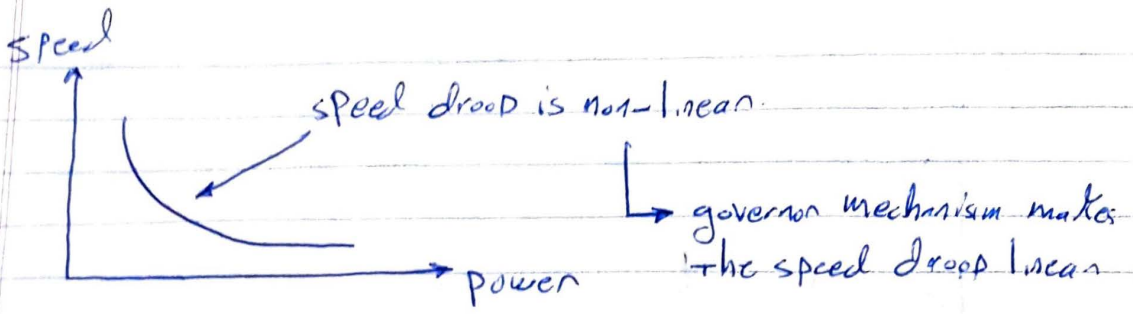 speed
speed droop is non-linear.
governor mechanism makes
the speed droop linear
power